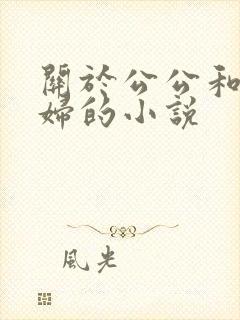 關於公公和
婦的小說
風光